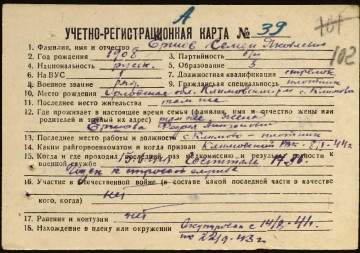 А
УЧЕТНО-РЕГИСТРАЦИОННАЯ КАРТА № 39
101
102
1. Фамилия, имя и отчество Ершов Семен Яковлевич
2. Год рождения 1908 3. Партийность б/п
4. Национальность русск. 5. Образование 3
6. На ВУС 1 7. Должностная квалификация стрелок
8. Военное звание ряд. 9. Гражданская специальность плотник
10. Место рождения Орловская обл. Климовский р-н с. Климово
11. Последнее место жительства там же
12. Где проживает в настоящее время семья (фамилия, имя и отчество жены или
родителей и полный адрес) там же жена
Ершова
13. Последнее место работы и должность с. Климово плотник
14. Каким райгорвоенкоматом и когда призван Климовский РВК
15. Когда и где проходил последний раз медкомиссию и результат годности к
военной службе
Годен к строевой службе
16. Участие в Отечественной войне (в составе какой последней части в качестве
кого, когда) нет
17. Ранения и контузии нет
18. Нахождение в плену или окружении Окружения с
по 22/9-43 г.